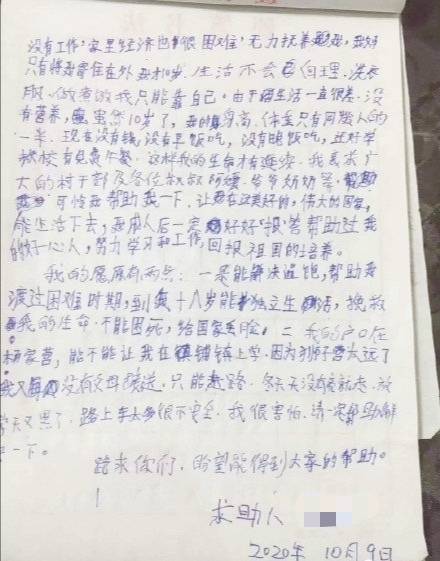 没有工作,家里经济也很困难,无力抚养我,我好
只有将我寄住在外 我才10岁,生活不会自理.洗衣
服.做煮饭我只能靠自己.由于生活一直很差.没
有营养,虽然10岁了,我的身高,体重只有同龄人的
一半.现在没有钱,没有早饭吃,没有晚饭吃,还好学
校有免费午餐.这样我的生命才有延续.我恳求广
大的村干部及各位叔叔阿姨.爷爷奶奶等
可怜我帮助我一下.让我在这美好的,伟大的国家,
能生活下去,我成人后一定好好"报"答帮助过我
的好心人,努力学习和工作,回报祖国的培养。
我的愿愿有两点:一是能解决温饱,帮助我
渡过困难时期,到我十八岁能独立生活,挽救
我的生命.不能困死,给国家丢脸,二我的户口在
家营,能不能让我在镇铺镇上学.因为营太远了
我又没有父母接送.只能走路.冬天天没有亮就走.放
学天又黑了.路上车太多很不安全.我很害怕.请一定帮助解
一下。
跪求你们,盼望能得到大家的帮助。
求助人
2020年10月9日